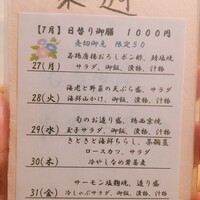 【7月】日替り御膳 1000円
売切御免 限定50
若鶏唐揚おろしポン酢、鯖塩焼
27(月) サラダ、御飯、漬物、汁物
海老と野菜の天ぷら盛、サラダ
28(火) 海鮮山かけ、御飯、漬物、汁物
旬のお造り盛、鶏西京焼
29(水) 玉子サラダ、御飯、漬物、汁物
きときと海鮮ちらし、茶碗蒸
ロースカツ、サラダ
30(木) 冷やしなめ茸蕎麦
サーモン塩麹焼、造り盛
31(金) 冷しゃぶサラダ、御飯、漬物、汁物